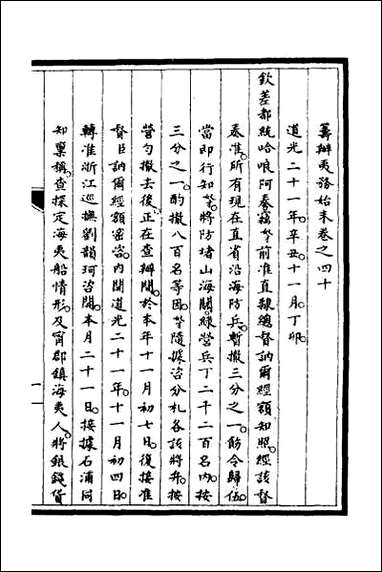 籌辦夷務始末卷之四十
道光二十一年辛丑十一月丁卯
欽差都統哈哴阿奏竊等前准直隸總督訥爾經額知照經該督
奏准所有現在直省沿海防兵暫撤三分之一飭令歸伍
當即行知等將防堵山海關綠營兵丁二千二百名內按
三分之一酌撤八百名等因等隨據咨分札各該將弁按
營勻撤去後正在查辦間於本年十一月初七日復接准
督臣訥爾經額密咨內開道光二十一年十一月初四日
轉准浙江巡撫劉韻珂咨開本月二十一日接據石浦同
知稟稱查探定海夷船情形及甯郡鎮海夷人將銀錢貨